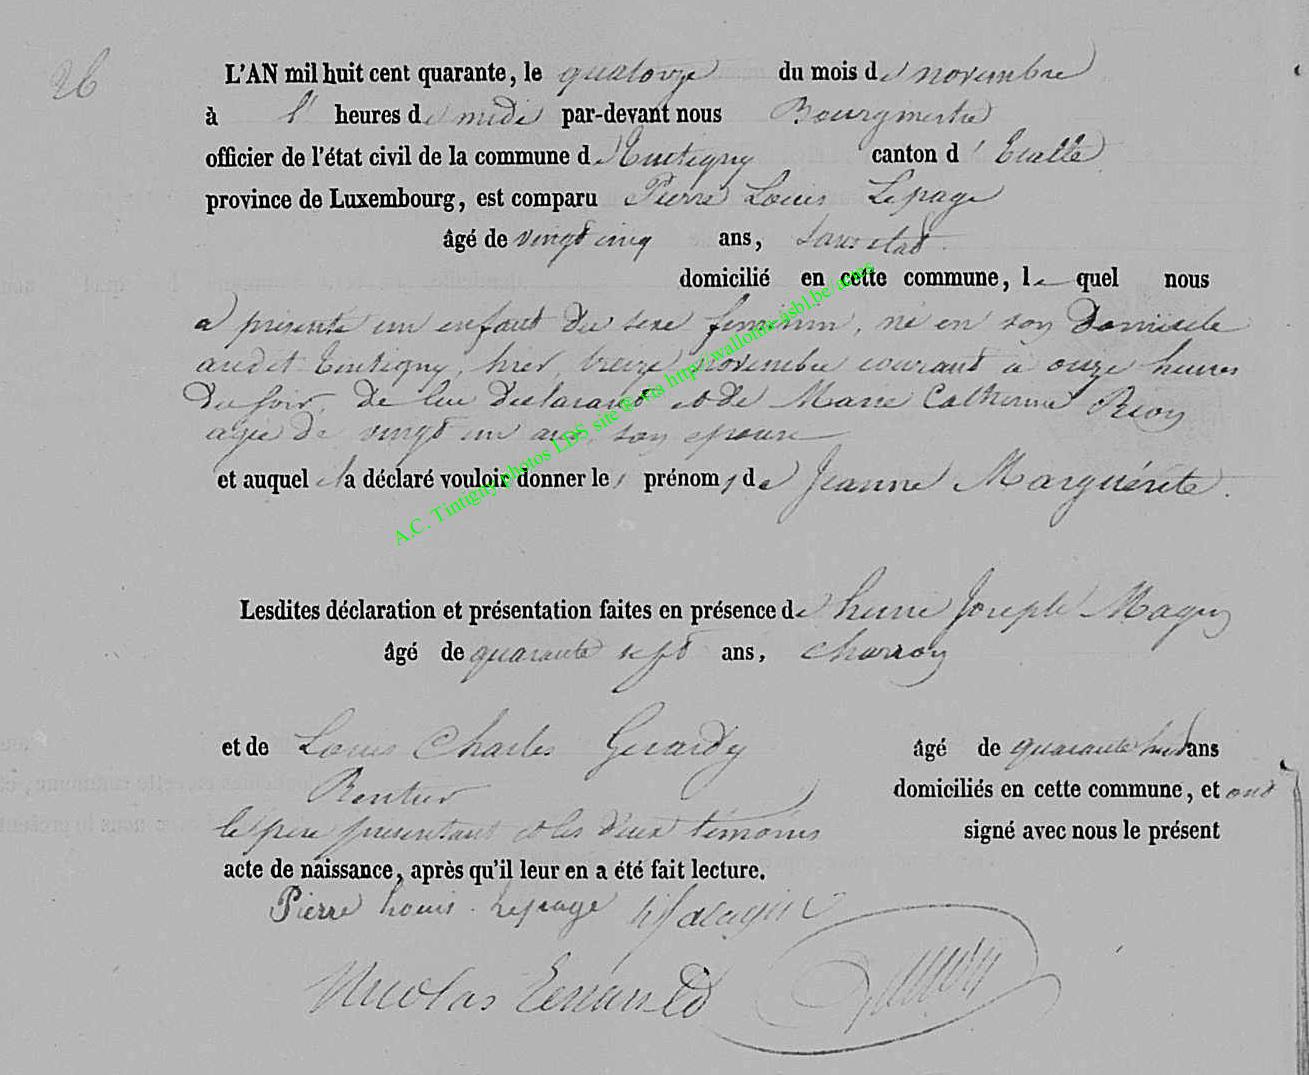 26
L'AN mil huit cent quarante, le quatorze du mois de novembre
à 1 heures de midi par-devant nous Bourgmestre
officier de l'état civil de la commune de Tintigny canton d'Etalle
province de Luxembourg, est comparu Pierre Louis Lepage
âgé de vingt cinq ans, sans etat
domicilié en cette commune, le quel nous
a présenté un enfant du sexe feminin, né en son domicile
audit Tintigny, hier, treize novembre courant à onze heures
du soir, de lui déclarant et de Marie Catherine
agée de vingt un ans son epouse
et auquel il a déclaré vouloir donner les prénoms de Jeanne Marguérite.
Lesdites déclaration et présentation faites en présence de Joseph
âgé de quarante sept ans, charron
et de Louis Charles Gerardy âgé de quarante huit ans
Rentier domiciliés en cette commune, et ont
le père présentant et les deux témoins signé avec nous le présent
acte de naissance, après qu'il leur en a été fait lecture.
Pierre Louis Lepage
Nicolas
A.C. Tintigny photos LDS site @ via http://wallonia-asbl.be/actes